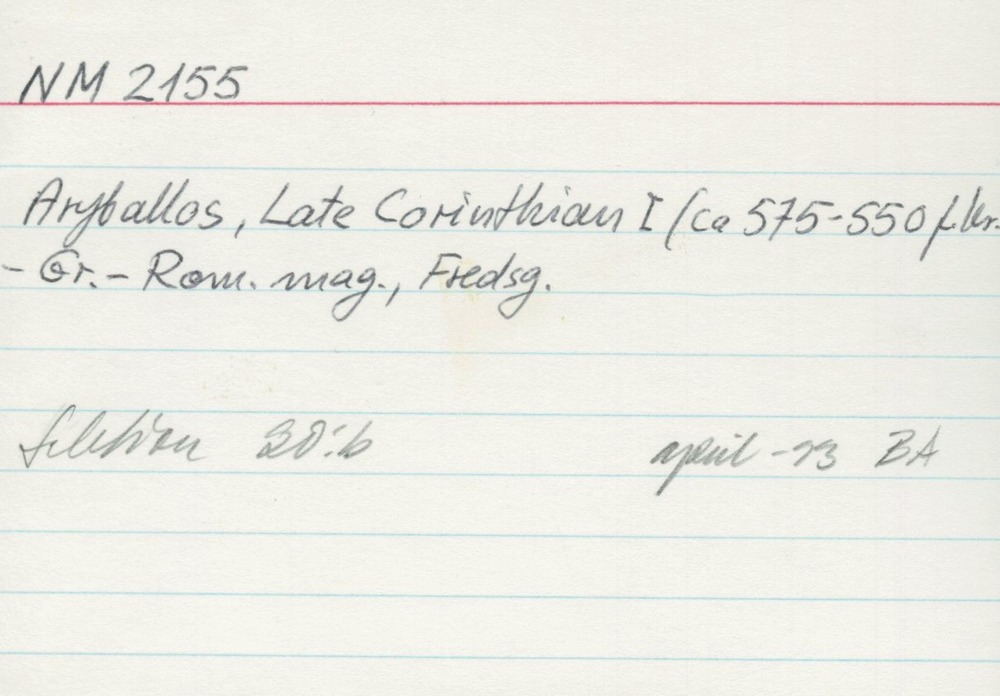 NM 2155
Aryballos, Late Corinthian I (ca 575-550 f.Kr.
- Gr.- Rom. mag., Fredsg.
Sektion 30:b april -93 BA